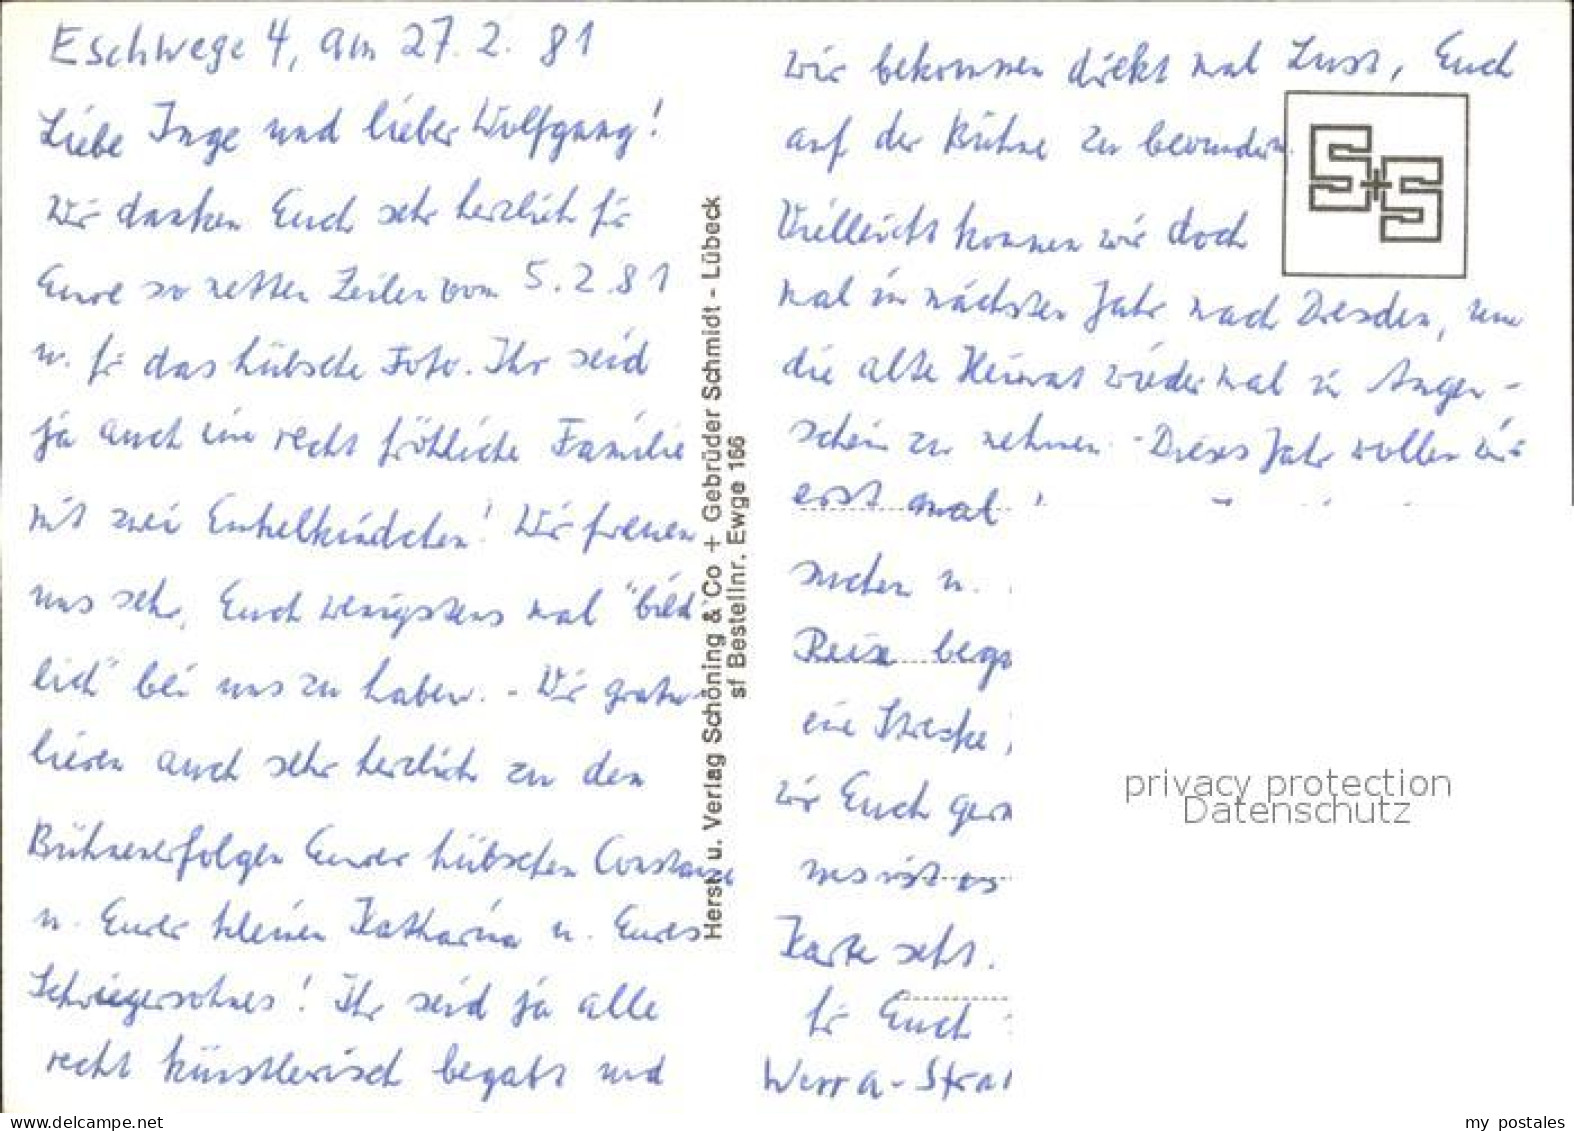 Eschwege 4, am 27.2.81
Liebe Inge und lieber Wolfgang!
Wir danken Euch sehr herzlich für
Eure so netten Zeilen vom 5.2.81
u. für das hübsche Foto. Ihr seid
ja auch eine recht fröhliche Familie
mit zwei Enkelkindchen! Wir freuen
uns sehr, Euch wenigstens mal "bild
lich" bei uns zu haben. - Wir gratu-
lieren auch sehr herzlich zu den
Bühnenerfolgen Eurer hübschen Constanze
u. Eurer kleinen Katharina u. Eures
Schwiegersohnes! Ihr seid ja alle
recht künstlerisch begabt und
Herst. u. Verlag Schöning & Co + Gebrüder Schmidt - Lübeck
sf Bestellnr. Ewge 166
wir bekommen direkt mal Lust, Euch
auf der Bühne zu bewundern.
Vielleicht kommen wir doch
mal im nächsten Jahr nach Dresden, um
die alte Heimat wieder mal in Augen-
schein zu nehmen. - Dieses Jahr wollen wir
erst mal
suchen u.
Reise
eine Strecke,
wir Euch
uns ist es
Karte seht.
für Euch
Werra-
S+S
privacy protection
Datenschutz
my postales